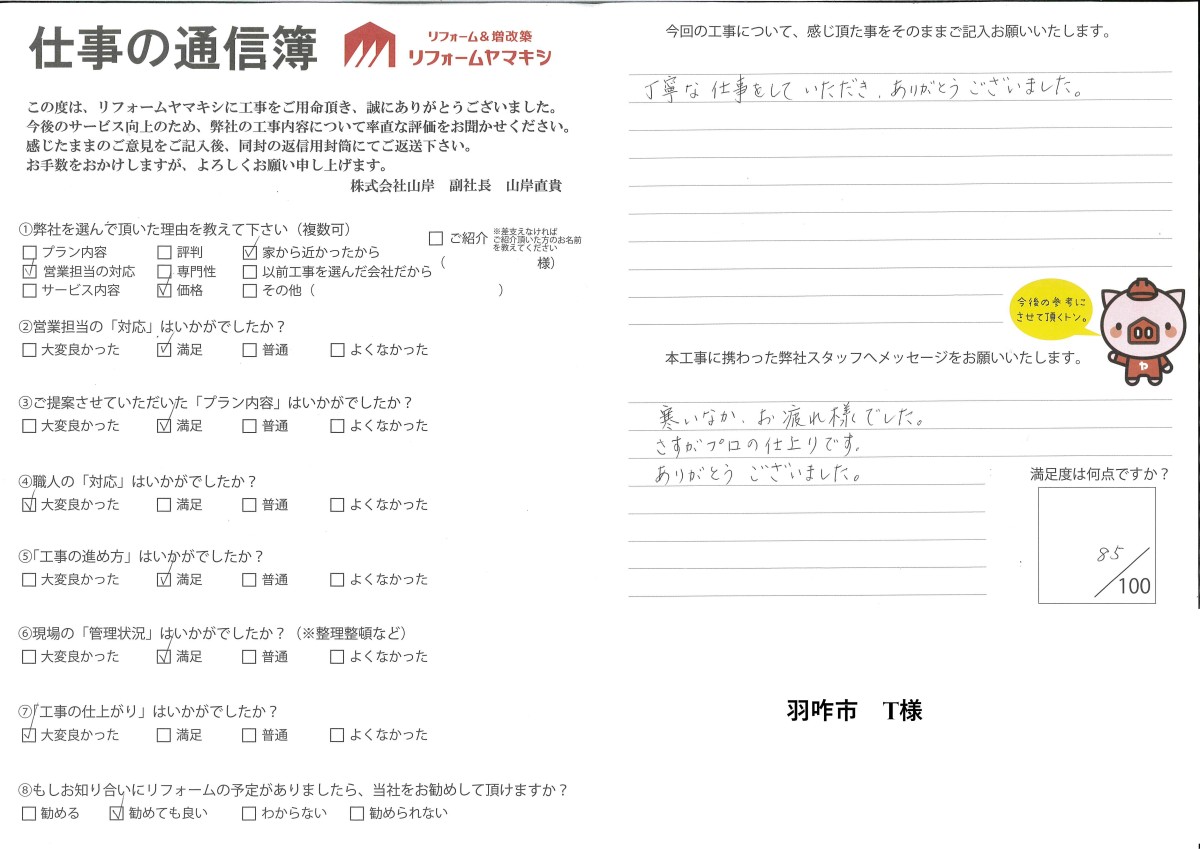 仕事の通信簿
リフォーム&増改築
リフォームヤマキシ
この度は、リフォームヤマキシに工事をご用命頂き、誠にありがとうございました。
今後のサービス向上のため、弊社の工事内容について率直な評価をお聞かせください。
感じたままのご意見をご記入後、同封の返信用封筒にてご返送下さい。
お手数をおかけしますが、よろしくお願い申し上げます。
株式会社山岸　副社長　山岸直貴
①弊社を選んで頂いた理由を教えて下さい（複数可）
□ プラン内容　□ 評判　☑ 家から近かったから　□ ご紹介 ※差支えなければ
ご紹介頂いた方のお名前
を教えてください
☑ 営業担当の対応　□ 専門性　□ 以前工事を選んだ会社だから （　様）
□ サービス内容　☑ 価格　□ その他（　）
②営業担当の「対応」はいかがでしたか？
□ 大変良かった　☑ 満足　□ 普通　□ よくなかった
③ご提案させていただいた「プラン内容」はいかがでしたか？
□ 大変良かった　☑ 満足　□ 普通　□ よくなかった
④職人の「対応」はいかがでしたか？
☑ 大変良かった　□ 満足　□ 普通　□ よくなかった
⑤「工事の進め方」はいかがでしたか？
□ 大変良かった　☑ 満足　□ 普通　□ よくなかった
⑥現場の「管理状況」はいかがでしたか？（※整理整頓など）
□ 大変良かった　☑ 満足　□ 普通　□ よくなかった
⑦「工事の仕上がり」はいかがでしたか？
☑ 大変良かった　□ 満足　□ 普通　□ よくなかった
⑧もしお知り合いにリフォームの予定がありましたら、当社をお勧めして頂けますか？
□ 勧める　☑ 勧めても良い　□ わからない　□ 勧められない
今回の工事について、感じ頂た事をそのままご記入お願いいたします。
丁寧な仕事をしていただき、ありがとうございました。
今後の参考に
させて頂くトン。
ヤ
本工事に携わった弊社スタッフへメッセージをお願いいたします。
寒いなか、お疲れ様でした。
さすがプロの仕上りです。
ありがとうございました。
満足度は何点ですか？
85/100
羽咋市　T様